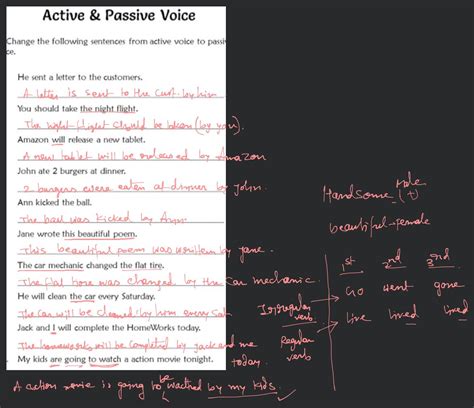 Active & Passive Voice
Change the following sentences from active voice to passi
ce.
He sent a letter to the customers.
A letter is sent to the Cust. by him
You should take the night flight.
The night flight should be taken (by you).
Amazon will release a new tablet.
A new tablet will be released by Amazon
John ate 2 burgers at dinner.
2 burgers were eaten at dinner by John.
Ann kicked the ball.
The ball was kicked by Ann
Jane wrote this beautiful poem.
This beautiful poem was written by Jane.
The car mechanic changed the flat tire.
The flat tire was changed by the Car mechanic.
He will clean the car every Saturday.
The Car will be cleaned by him every Sat
Jack and I will complete the HomeWorks today.
The homeworks will be completed by Jack and me
today.
My kids are going to watch a action movie tonight.
A action movie is going to be watched by my kids.
Handsome (+)
Male
beautiful - female
1st 2nd 3rd
Irregular verb
Go went gone
Regular verb
live lived lived